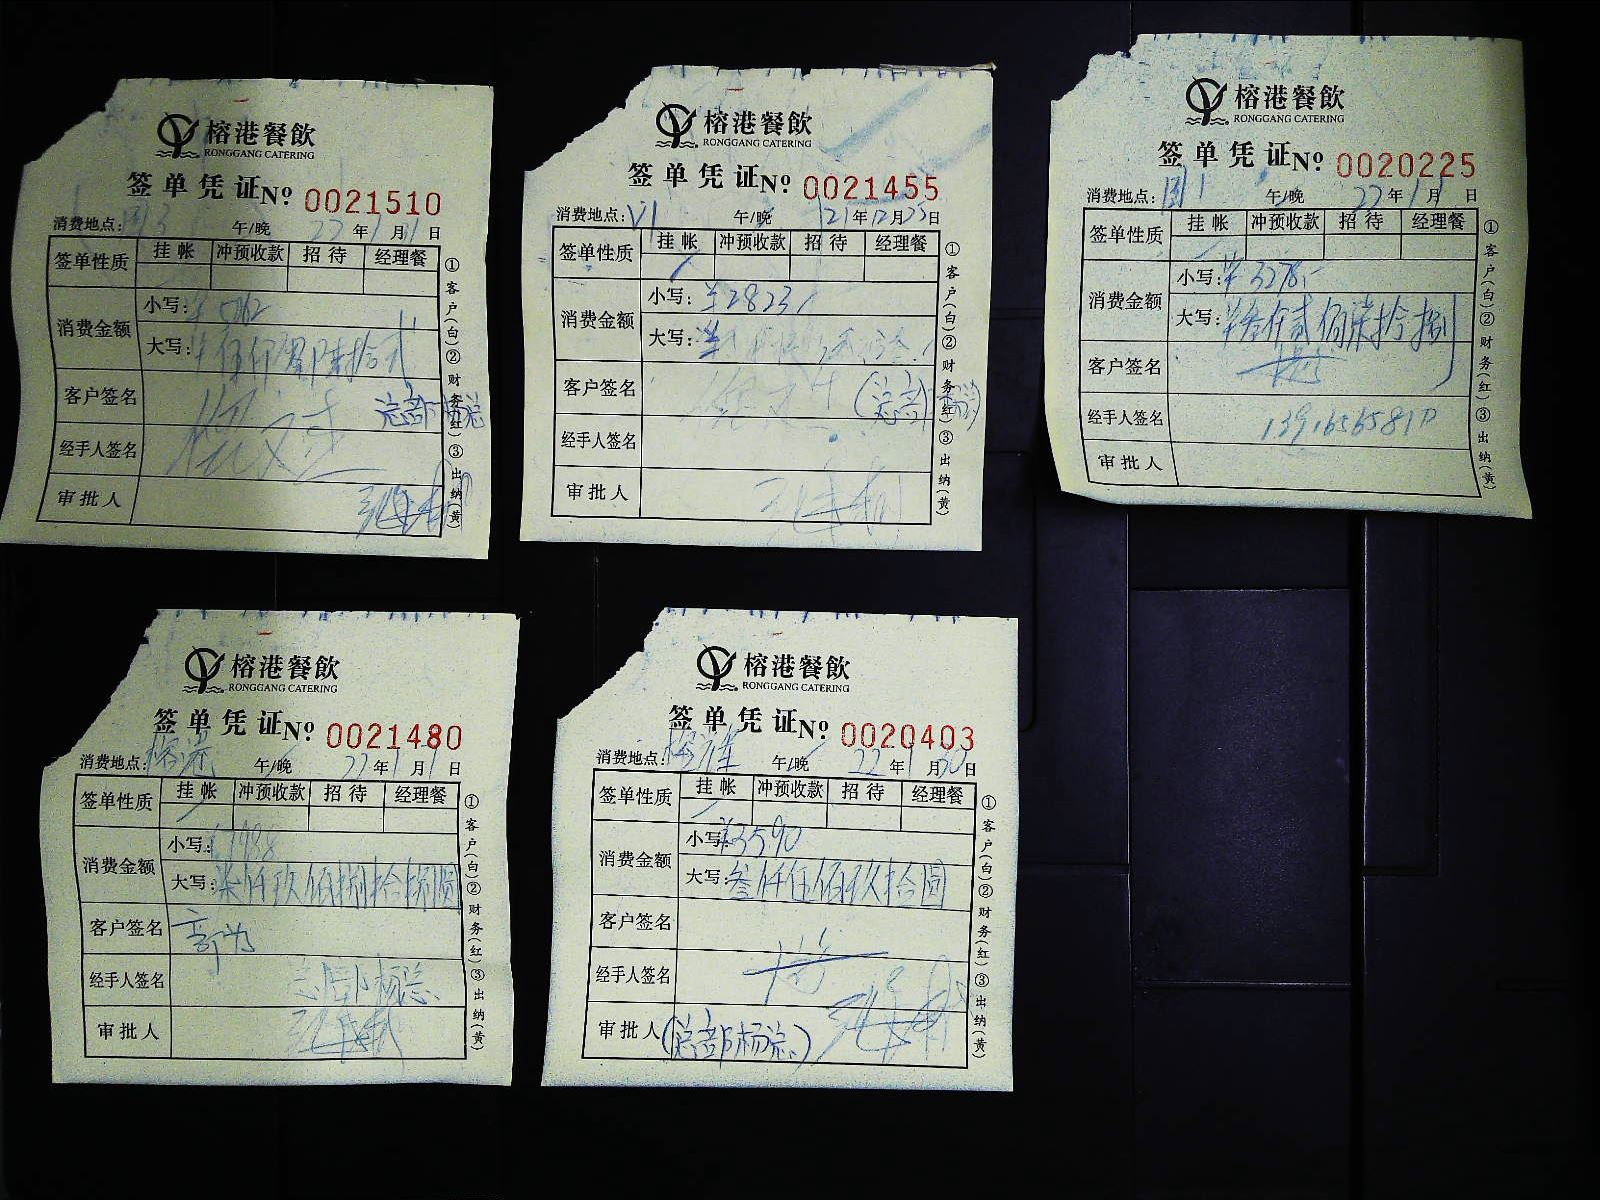 榕港餐飲
RONGGANG CATERING
签单凭证 No 0021510
消费地点: 午/晚 22年1月1日
签单性质 挂帐 冲预收款 招待 经理餐
消费金额
小写:¥5062
大写:伍仟零陆拾贰
客户签名 总部杨总
经手人签名
审批人
①客户(白)②财务(红)③出纳(黄)
榕港餐飲
RONGGANG CATERING
签单凭证 No 0021455
消费地点:V1 午/晚 21年12月25日
签单性质 挂帐 冲预收款 招待 经理餐
消费金额
小写:¥2823
大写:
客户签名 (总部杨总)
经手人签名
审批人
①客户(白)②财务(红)③出纳(黄)
榕港餐飲
RONGGANG CATERING
签单凭证 No 0020225
消费地点: 午/晚 22年1月1日
签单性质 挂帐 冲预收款 招待 经理餐
消费金额
小写:¥3278.-
大写:叁仟贰佰柒拾捌
客户签名
经手人签名
审批人
①客户(白)②财务(红)③出纳(黄)
榕港餐飲
RONGGANG CATERING
签单凭证 No 0021480
消费地点:榕港 午/晚 22年1月1日
签单性质 挂帐 冲预收款 招待 经理餐
消费金额
小写:¥7988
大写:柒仟玖佰捌拾捌圆
客户签名
经手人签名 总部杨总
审批人
①客户(白)②财务(红)③出纳(黄)
榕港餐飲
RONGGANG CATERING
签单凭证 No 0020403
消费地点: 午/晚 22年1月30日
签单性质 挂帐 冲预收款 招待 经理餐
消费金额
小写:¥3590
大写:叁仟伍佰玖拾圆
客户签名
经手人签名
审批人 (总部杨总)
①客户(白)②财务(红)③出纳(黄)